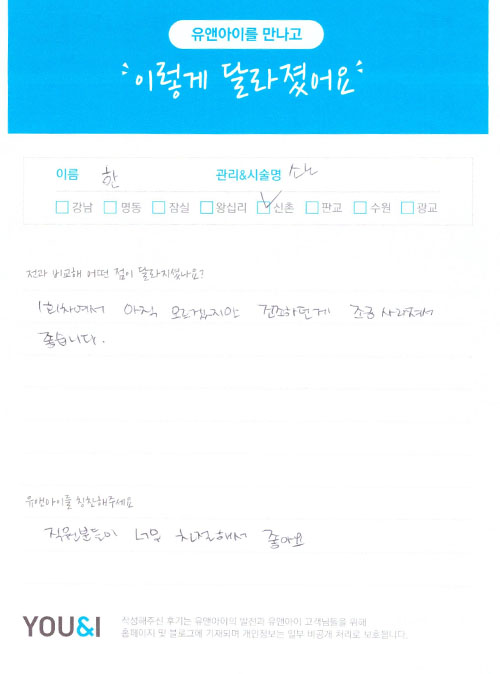 유앤아이를 만나고
이렇게 달라졌어요
이름 한 관리&시술명
강남 명동 잠실 왕십리 신촌 판교 수원 광교
전과 비교해 어떤 점이 달라지셨나요?
1회차여서 아직 모르겠지만 건조하던게 조금 사라져서
좋습니다.
유앤아이를 칭찬해주세요
직원분들이 너무 친절해서 좋아요
YOU&I 작성해주신 후기는 유앤아이의 발전과 유앤아이 고객님들을 위해
홈페이지 및 블로그에 기재되며 개인정보는 일부 비공개 처리로 보호됩니다.